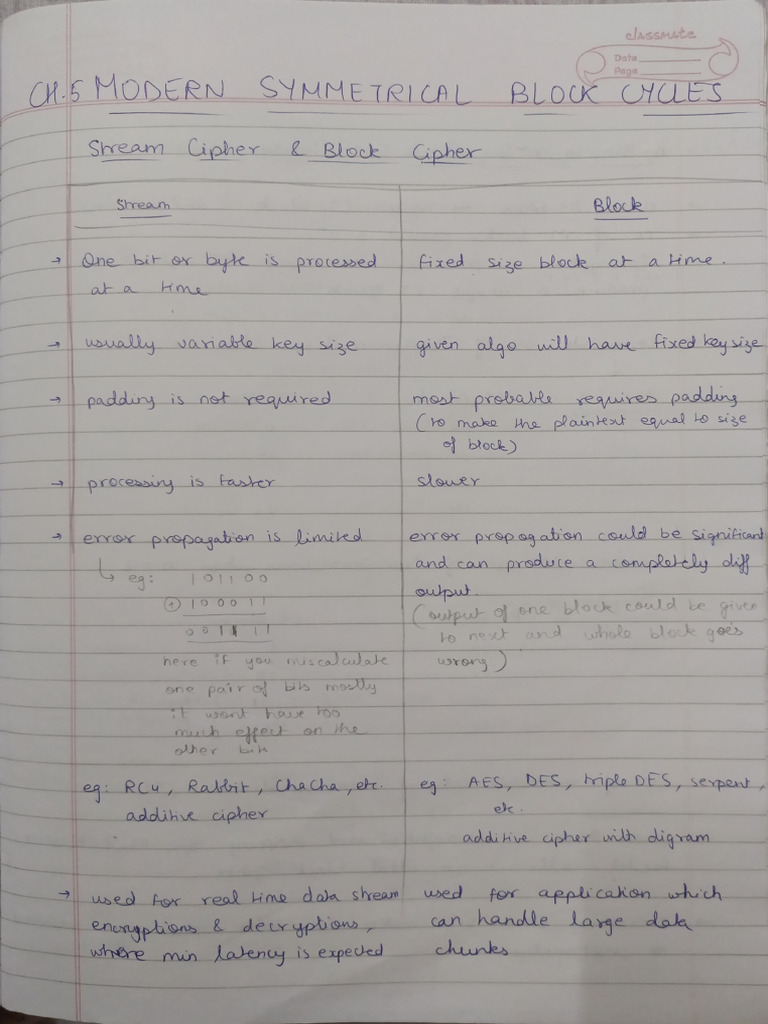 classmate
Date
Page
CH.5 MODERN SYMMETRICAL BLOCK CYCLES
Stream Cipher & Block Cipher
Stream
→ One bit or byte is processed
at a time
→ usually variable key size
→ padding is not required
→ processing is faster
→ error propagation is limited
↳ eg: 101100
⊕ 100011
001111
here if you miscalculate
one pair of bits mostly
it wont have too
much effect on the
other bits
eg: RC4, Rabbit, ChaCha, etc.
additive cipher
→ used for real time data stream
encryptions & decryptions,
where min latency is expected
Block
fixed size block at a time.
given algo will have fixed key size
most probable requires padding
(to make the plaintext equal to size
of block)
slower
error propogation could be significant
and can produce a completely diff
output.
(output of one block could be given
to next and whole block goes
wrong)
eg: AES, DES, triple DES, serpent,
etc.
additive cipher with digram
used for application which
can handle large data
chunks